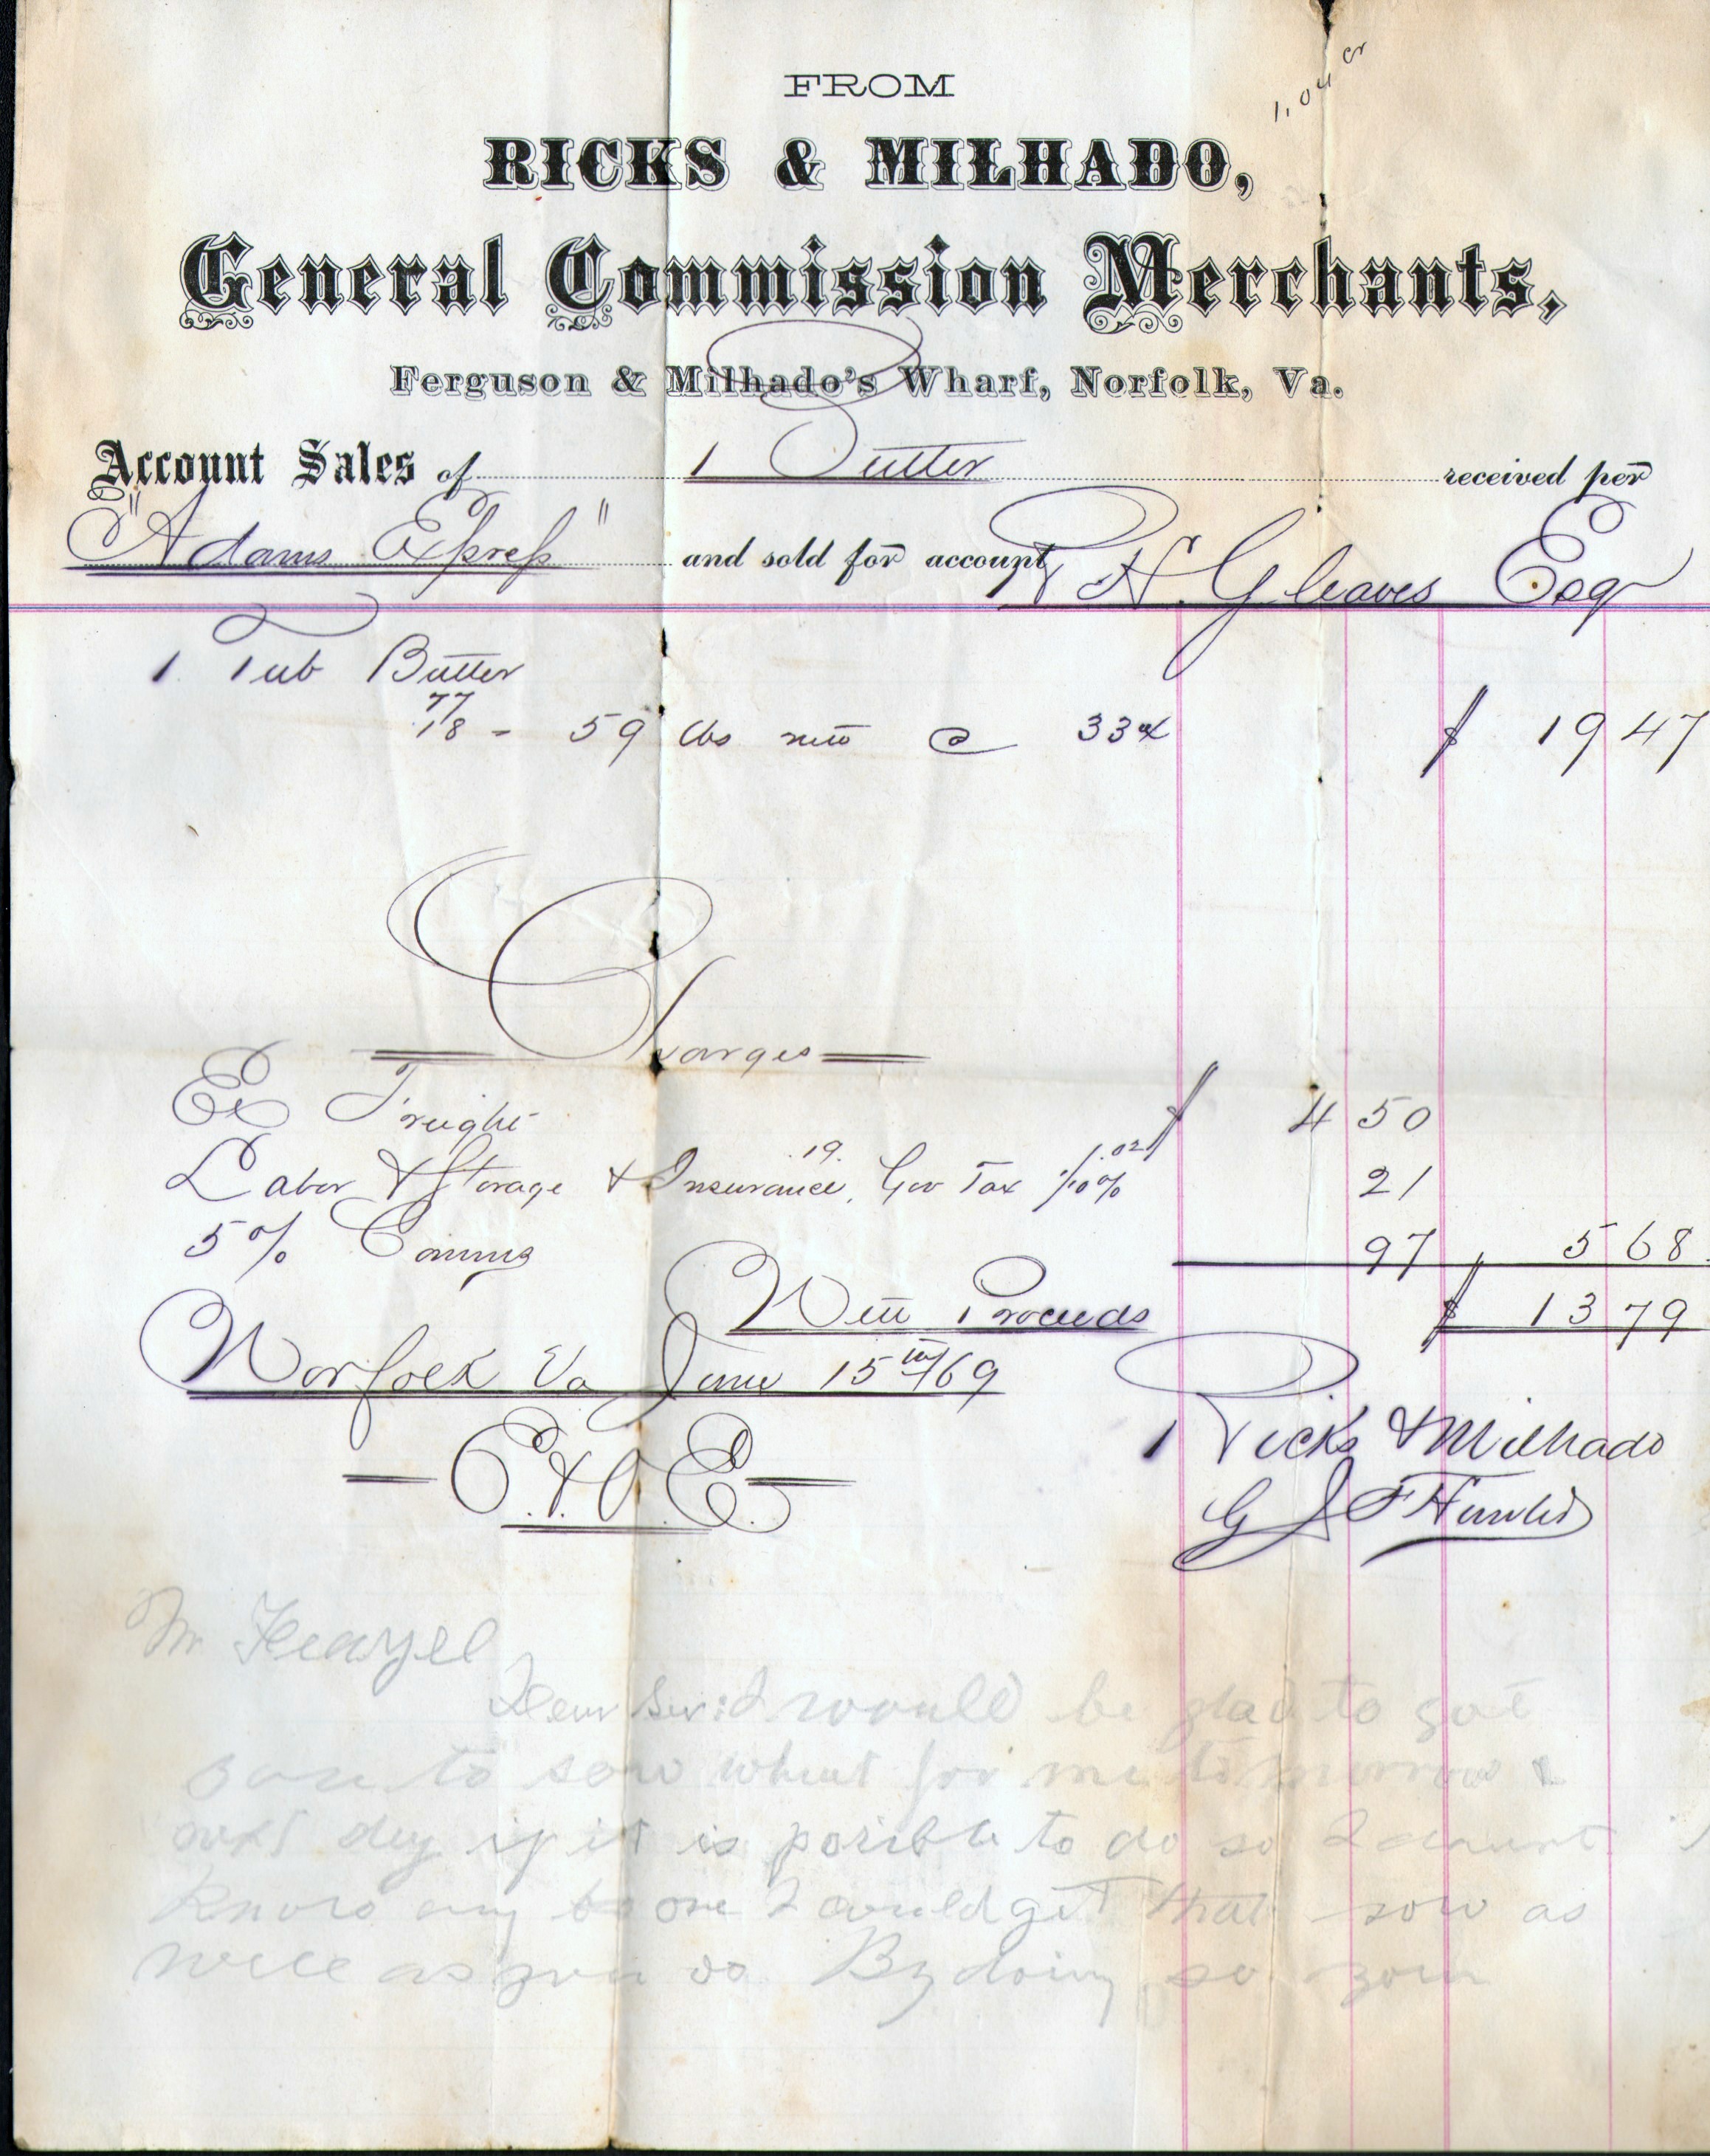 1,04 cr
FROM
RICKS & MILHADO,
General Commission Merchants,
Ferguson & Milhado's Wharf, Norfolk, Va.
Account Sales of 1 Butter received per
"Adams Express" and sold for account R N. Gleaves Esq
1 Tub Butter
77
18 - 59 lbs nett @ 33c $ 19 47
Charges
Ex Freight $ 4 50
Labor & Storage & Insurance, .19. Gov Tax 1/10% .02 21
5% Comms 97 5 68
Nett Proceeds $ 13 79
Norfolk Va June 15th/69
E. & O. E.
Ricks & Milhado
G
Mr Heazel
Dear Sir: I would be glad to get
to sow wheat for me to morrow &
next day if it is posible to do so I dount
know any one I could get that sow as
well as you do By doing so you